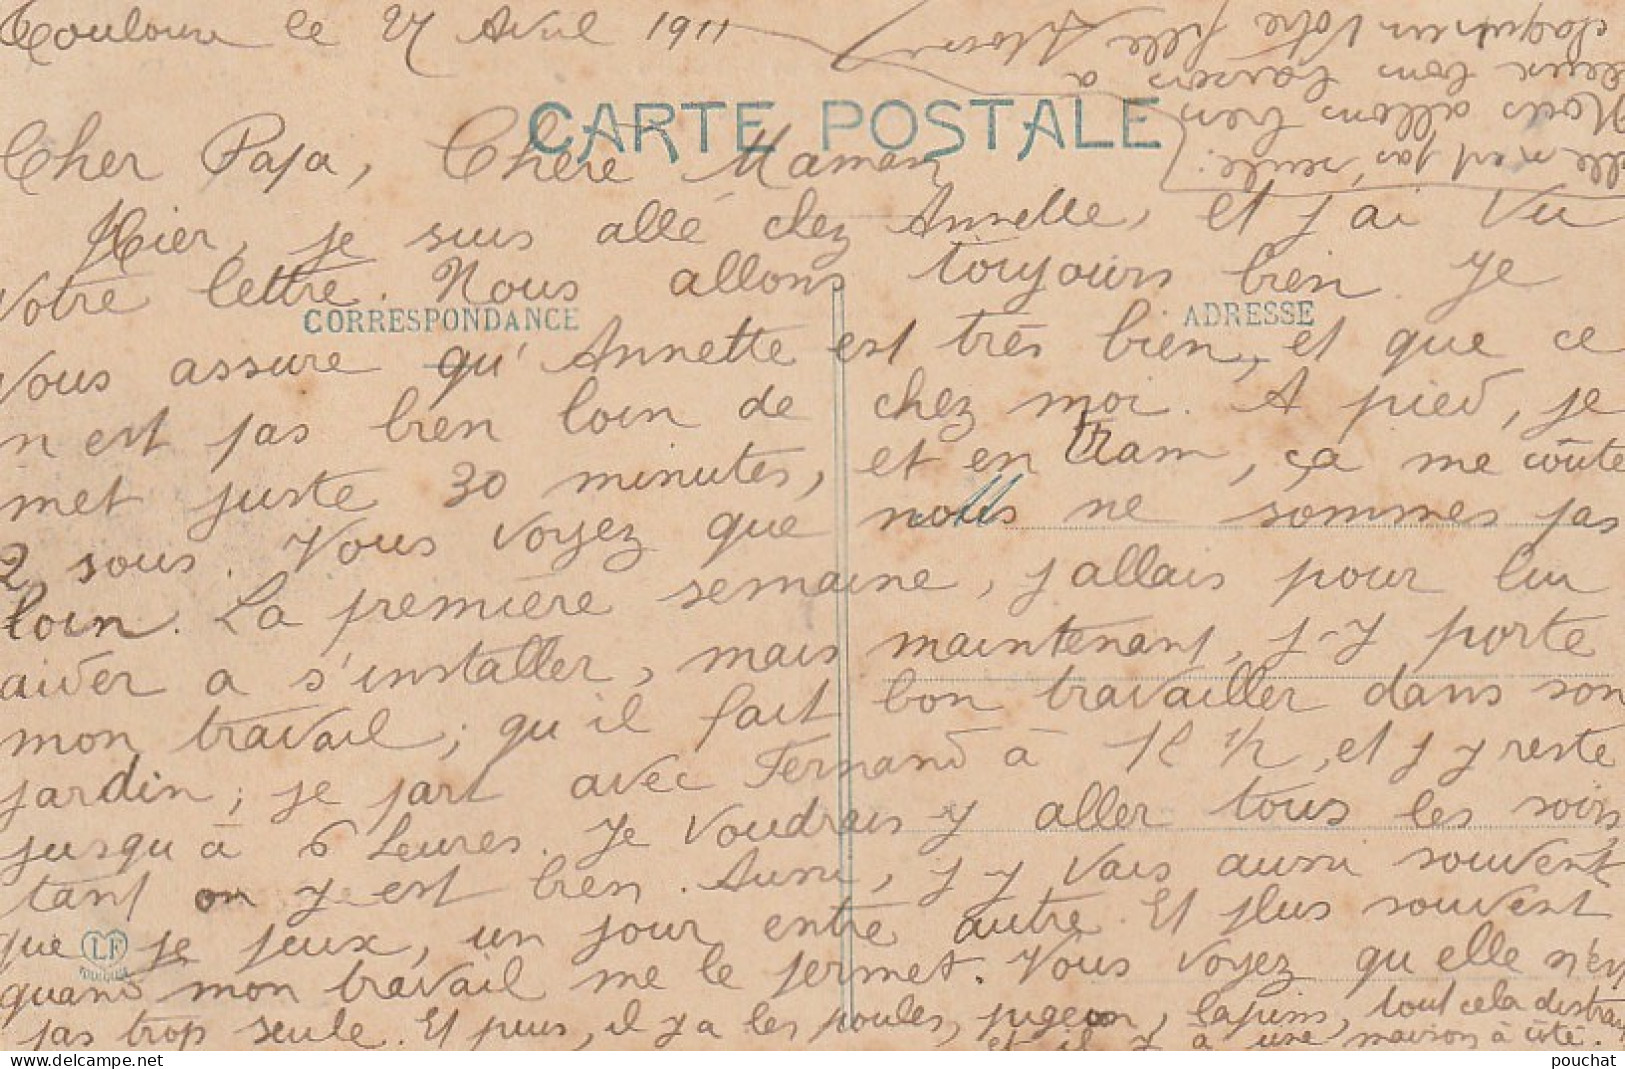 Toulouse le 27 Avril 1911
CARTE POSTALE
Cher Papa, Chère Maman
Hier, je suis allé chez Annette, et j'ai vu
votre lettre. Nous allons toujours bien. Je
CORRESPONDANCE
ADRESSE
vous assure qu'Annette est très bien, et que ce
n'est pas bien loin de chez moi. A pied, je
met juste 30 minutes, et en tram, ça me coûte
2 sous. Vous voyez que nous ne sommes pas
loin. La première semaine, j'allais pour lui
aider a s'installer, mais maintenant, j-y porte
mon travail; qu'il fait bon travailler dans son
jardin; je part avec Fernand à 1h 1/2, et j'y reste
jusqu'à 6 heures. Je voudrais y aller tous les soirs
tant on y est bien. Aussi, j'y vais aussi souvent
que je peux, un jour entre autre. Et plus souvent
LF
quand mon travail me le permet. Vous voyez qu'elle n'est
pas trop seule. Et puis, il y a les poules, pigeon, lapins, tout cela distrait
et il y à une maison à côté.
elle n'est pas seule.
Nous allons bien
deux bons baisers à
votre fille
pouchat
www.delcampe.net